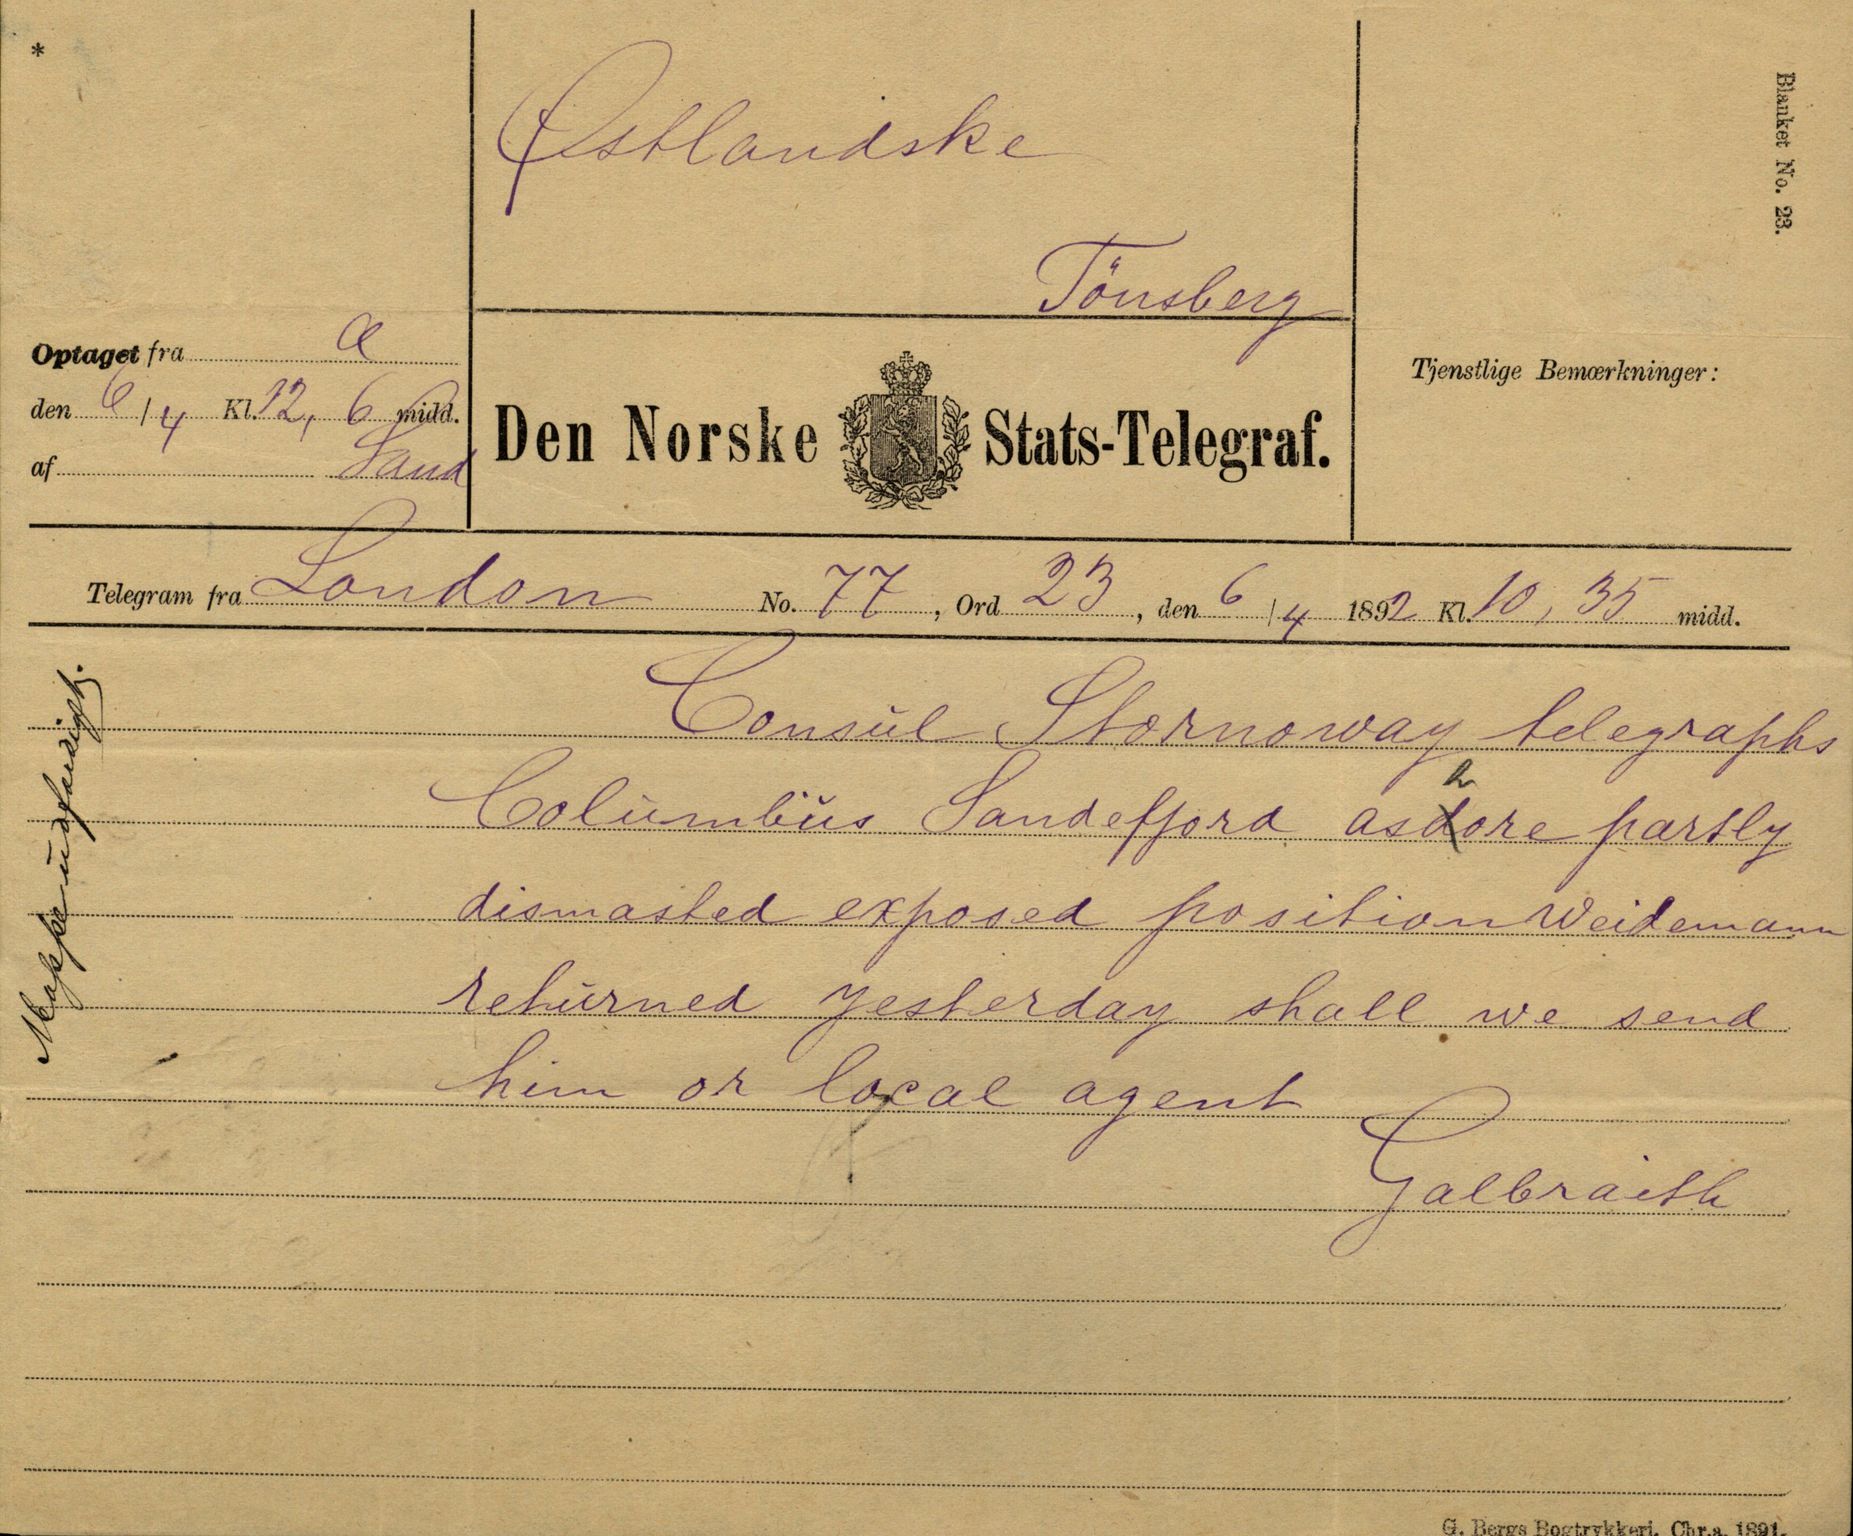 *
Østlandske
Tönsberg
Blanket No. 23.
Optaget fra a
den 6/4 Kl. 12,6 midd.
af Sand
Den Norske Stats-Telegraf.
Tjenstlige Bemærkninger:
Telegram fra London No. 77, Ord 23, den 6/4 1892 Kl. 10,35 midd.
Consul Stornoway telegraphs
Columbus Sandefjord ashore partly
dismasted exposed position Weidemann
returned yesterday shall we send
him or local agent
Galbraith
G. Bergs Bogtrykkeri. Chr.a. 1891.